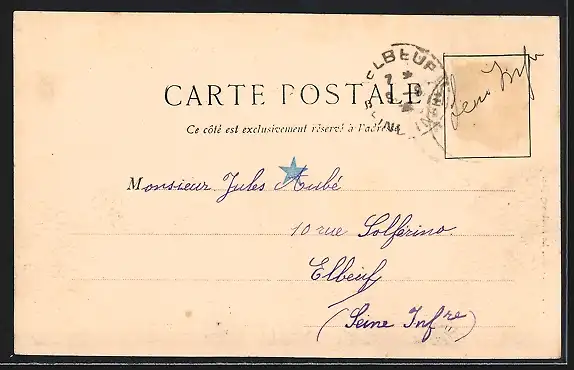 ELBEUF
SEINE INFRE
CARTE POSTALE
Ce côté est exclusivement réservé à l'adresse
Monsieur Jules Aubé
10 rue Solférino
Elbeuf
(Seine Infre)